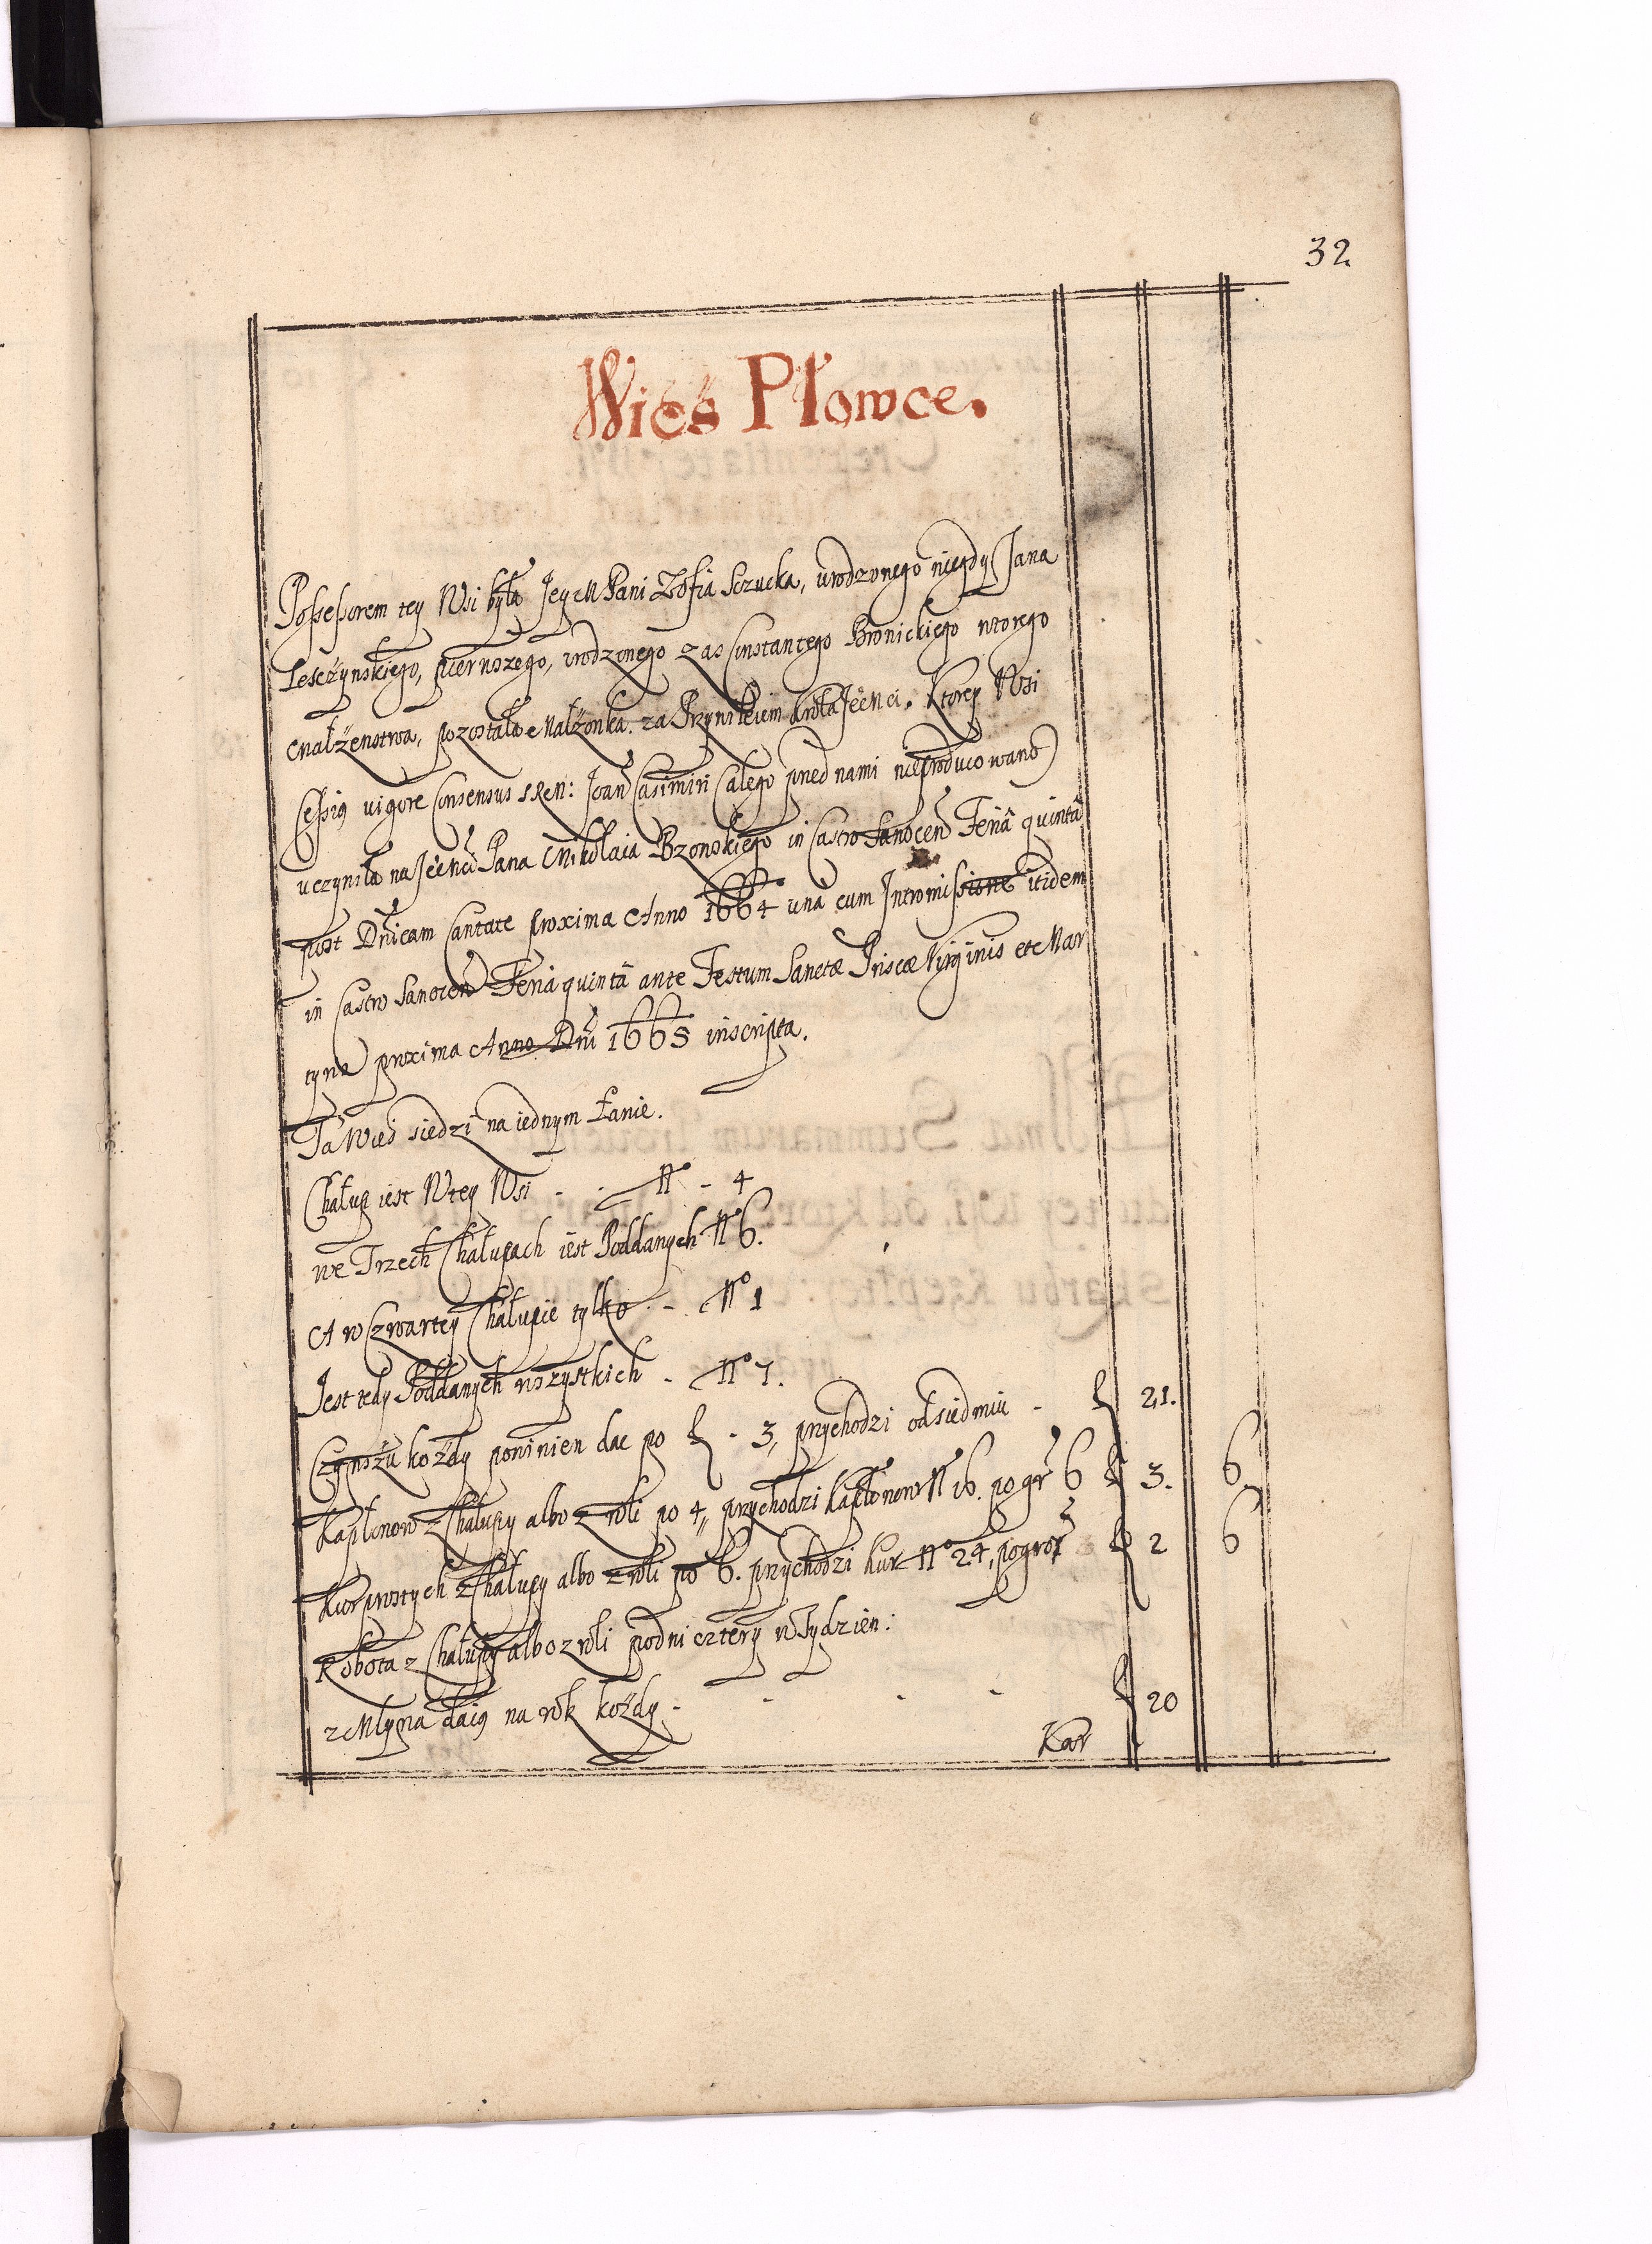 32
Wies Płowce.
Possessorem tey Wsi była Jey M Pani Zofia Sczucka, urodzonego niegdy Jana
Lesczynskiego, pierwszego, urodzonego zas Constantego Bronickiego wtorego
Małżenstwa, pozostała Małżonka. za Przywileiem Krola Je Mci. Ktorey Wsi
Cessią vigore Consensus SRM: Joan Casimiri (ale go pned nami nieproducowano)
uczyniła na Je Mci Pana Mikołaia Bzowskiego in Castro Sanocen Feriâ quintâ
post Dnicam Cantate proxima Anno 1664 unâ cum Intromissione itidem
in Castro Sanocen Feriâ quintâ ante Festum Sanctæ Priscæ Virginis et Mar
tyris proxima Anno Dni 1665 inscripta.
Ta Wieś siedzi na iednym Łanie.
Chałup iest W tey Wsi - . No - 4
we Trzech Chałupach iest Poddanych No 6.
A w Czwartey Chałupie tylko - No 1
Jest tedy Poddanych wszystkich - No 7.
Czynszu kożdy powinien dac po fl - 3, przychodzi od siedmiu - fl 21.
Kapłonow z Chałupy albo z roli po 4, przychodzi Kapłonow No 16. po gr 6 fl 3. 6
Kur prostych z Chałupy albo z roli po 6. przychodzi Kur No 24, po gro 3 fl 2 6
Robota z Chałupy albo z roli po dni cztery w Tydzien:
z Młyna daią na rok kożdy - - - - fl 20
Kar